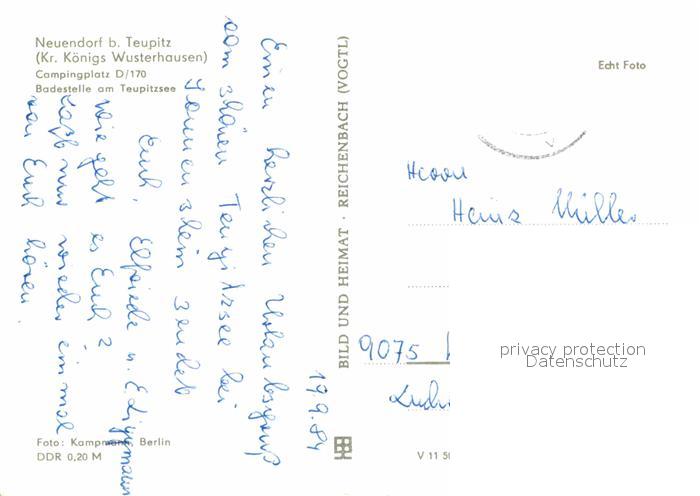 Neuendorf b. Teupitz
(Kr. Königs Wusterhausen)
Campingplatz D/170
Badestelle am Teupitzsee
19.9.84
Einen herzlichen Urlaubsgruß
vom schönen Teupitzsee bei
Sonnenschein sendet
Euch, Elfriede u. E.
Wie geht es Euch?
Laßt nur wieder einmal
von Euch hören.
Foto: Kampmann, Berlin
DDR 0,20 M
BILD UND HEIMAT · REICHENBACH (VOGTL)
Echt Foto
Herrn
Heinz Müller
9075
privacy protection
Datenschutz
V 11 50